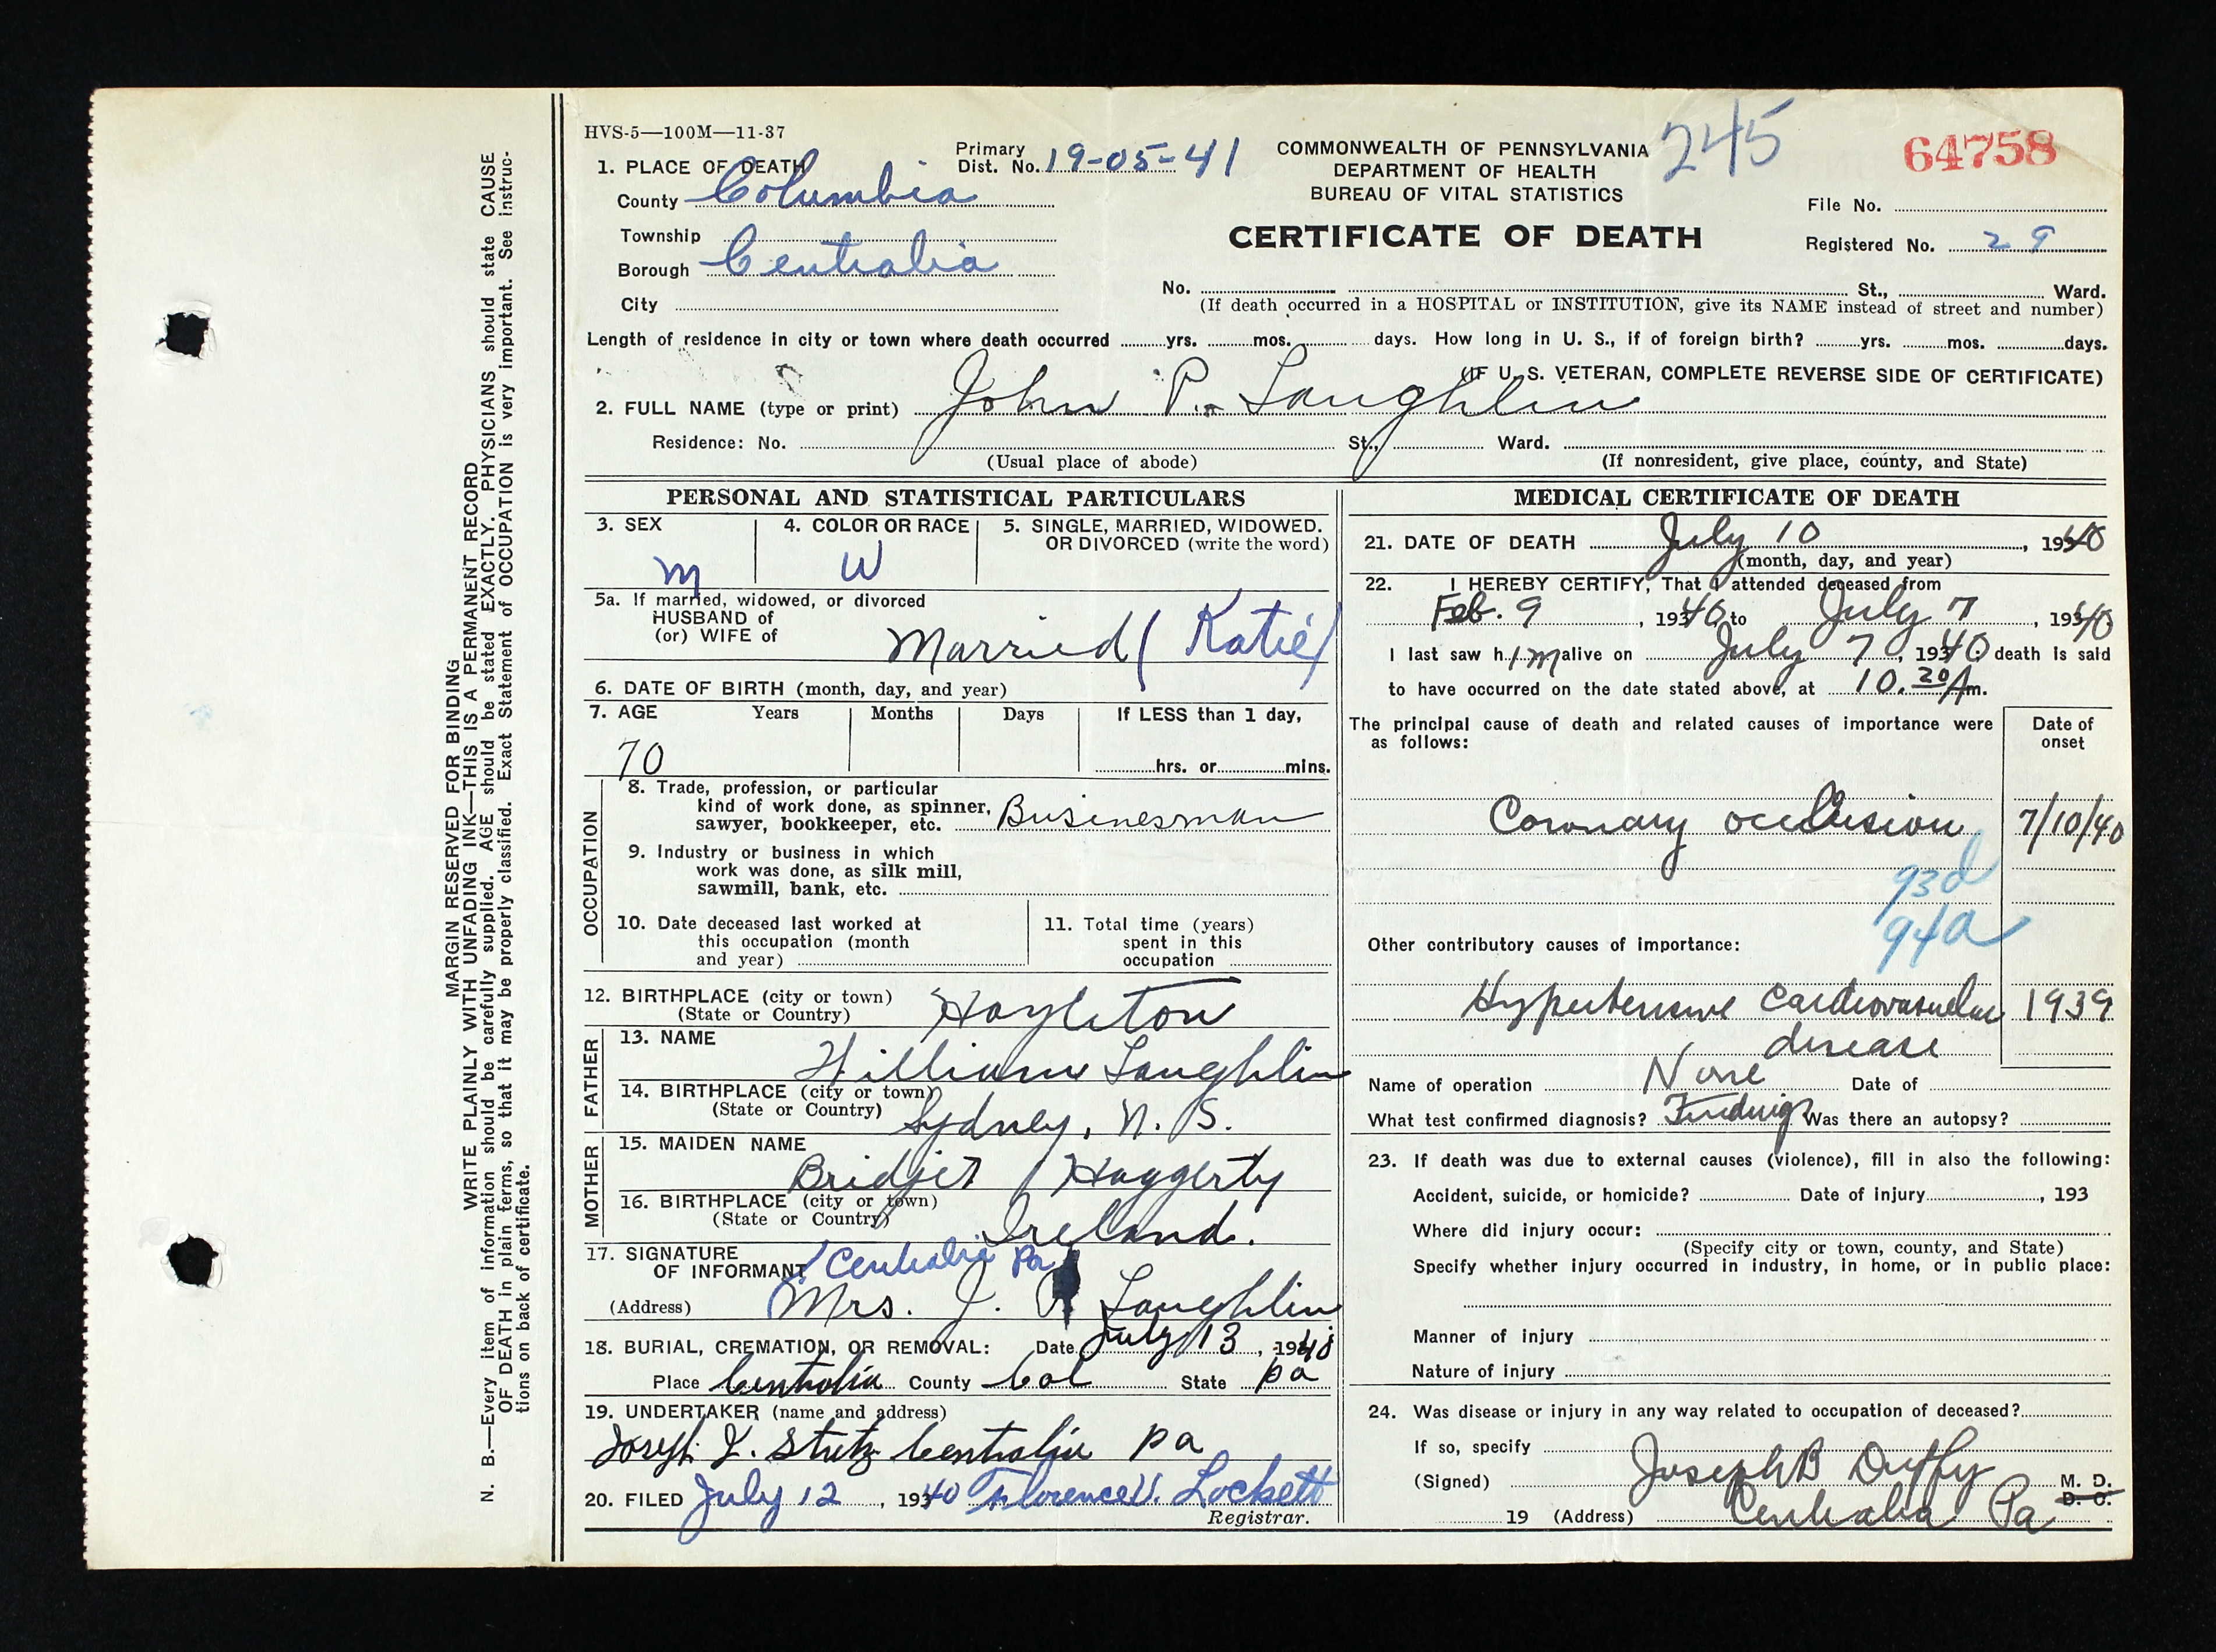 HVS-5—100M—11-37
1. PLACE OF DEATH
Primary
Dist. No. 19-05-41
COMMONWEALTH OF PENNSYLVANIA
DEPARTMENT OF HEALTH
BUREAU OF VITAL STATISTICS
CERTIFICATE OF DEATH
245
64758
File No.
Registered No. 29
County Columbia
Township
Borough Centralia
City
No. St., Ward.
(If death occurred in a HOSPITAL or INSTITUTION, give its NAME instead of street and number)
Length of residence in city or town where death occurred yrs. mos. days. How long in U. S., if of foreign birth? yrs. mos. days.
(IF U. S. VETERAN, COMPLETE REVERSE SIDE OF CERTIFICATE)
2. FULL NAME (type or print) John P. Laughlin
Residence: No. St., Ward.
(Usual place of abode)
(If nonresident, give place, county, and State)
PERSONAL AND STATISTICAL PARTICULARS
3. SEX
M
4. COLOR OR RACE
W
5. SINGLE, MARRIED, WIDOWED.
OR DIVORCED (write the word)
5a. If married, widowed, or divorced
HUSBAND of
(or) WIFE of
Married (Katie)
6. DATE OF BIRTH (month, day, and year)
7. AGE Years Months Days If LESS than 1 day,
70
hrs. or mins.
OCCUPATION
8. Trade, profession, or particular
kind of work done, as spinner,
sawyer, bookkeeper, etc. Businesman
9. Industry or business in which
work was done, as silk mill,
sawmill, bank, etc.
10. Date deceased last worked at
this occupation (month
and year)
11. Total time (years)
spent in this
occupation
12. BIRTHPLACE (city or town)
(State or Country) Hazleton
FATHER
13. NAME
William Laughlin
14. BIRTHPLACE (city or town)
(State or Country) Sydney, N. S.
MOTHER
15. MAIDEN NAME
Bridget Haggerty
16. BIRTHPLACE (city or town)
(State or Country) Ireland.
17. SIGNATURE
OF INFORMANT Centralia Pa
(Address) Mrs. J. P. Laughlin
18. BURIAL, CREMATION, OR REMOVAL: Date July 13, 1940
Place Centralia County Col State Pa
19. UNDERTAKER (name and address)
Joseph I. Stutz Centralia Pa
20. FILED July 12, 19340 Florence V. Lockett
Registrar.
MEDICAL CERTIFICATE OF DEATH
21. DATE OF DEATH July 10, 19340
(month, day, and year)
22. I HEREBY CERTIFY, That I attended deceased from
Feb. 9, 19340, to July 7, 19340
I last saw him alive on July 7, 19340; death is said
to have occurred on the date stated above, at 10.20 Am.
The principal cause of death and related causes of importance were
as follows:
Date of
onset
Coronary occlusion 7/10/40
93d
94a
Other contributory causes of importance:
Hypertensive Cardiovascular 1939
disease
Name of operation None Date of
What test confirmed diagnosis? Findings Was there an autopsy?
23. If death was due to external causes (violence), fill in also the following:
Accident, suicide, or homicide? Date of injury, 193
Where did injury occur:
(Specify city or town, county, and State)
Specify whether injury occurred in industry, in home, or in public place:
Manner of injury
Nature of injury
24. Was disease or injury in any way related to occupation of deceased?
If so, specify
(Signed) Joseph B Duffy M. D.
D. O.
19 (Address) Centralia Pa
MARGIN RESERVED FOR BINDING
WRITE PLAINLY WITH UNFADING INK—THIS IS A PERMANENT RECORD
N. B.—Every item of information should be carefully supplied. AGE should be stated EXACTLY. PHYSICIANS should state CAUSE
OF DEATH in plain terms, so that it may be properly classified. Exact Statement of OCCUPATION is very important. See instruc-
tions on back of certificate.